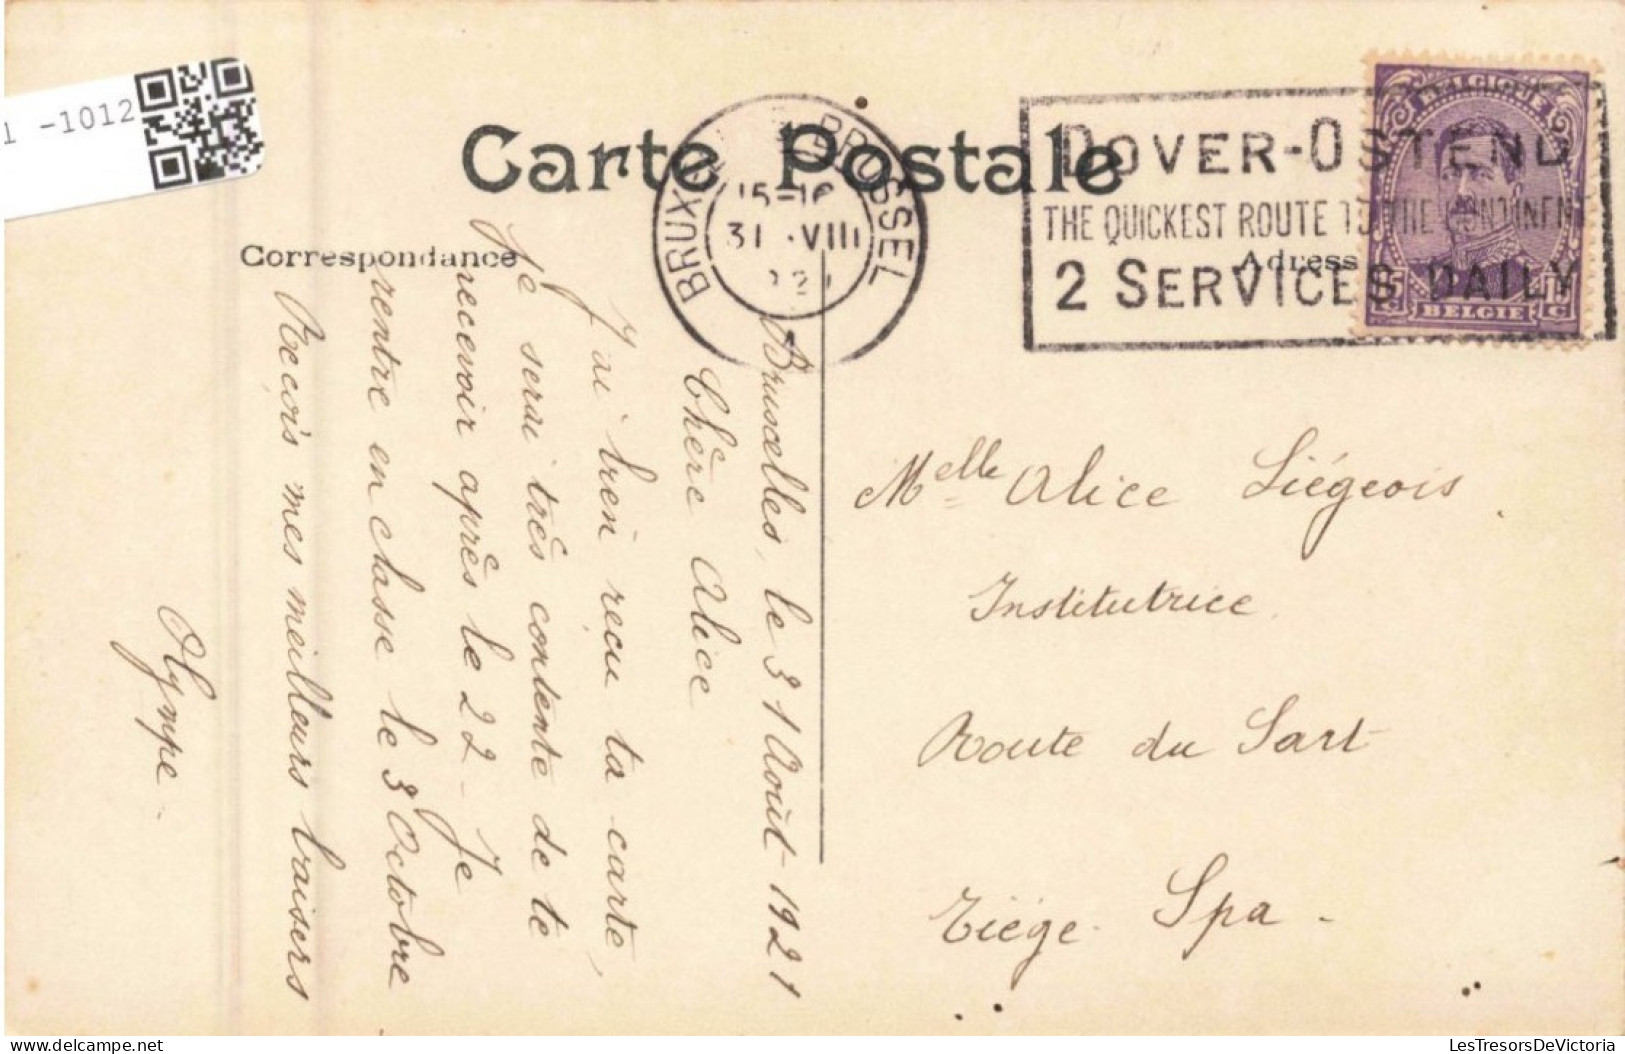 1 -1012
Carte Postale
Correspondance
Adresse
BRUXELLES BRUSSEL
15-16
31 VIII
DOVER-OSTEND
THE QUICKEST ROUTE TO THE CONTINENT
2 SERVICES DAILY
BELGIQUE
15 C
BELGIE
Bruxelles, le 31 Août 1921
Chère Alice
J'ai bien reçu ta carte,
je serai très contente de te
recevoir après le 22 - Je
rentre en classe le 3 Octobre
Reçois mes meilleurs baisers
Olympe -
Melle Alice Liégeois
Institutrice
Route du Sart
Tiége - Spa -
LesTresorsDeVictoria
delcampe.net